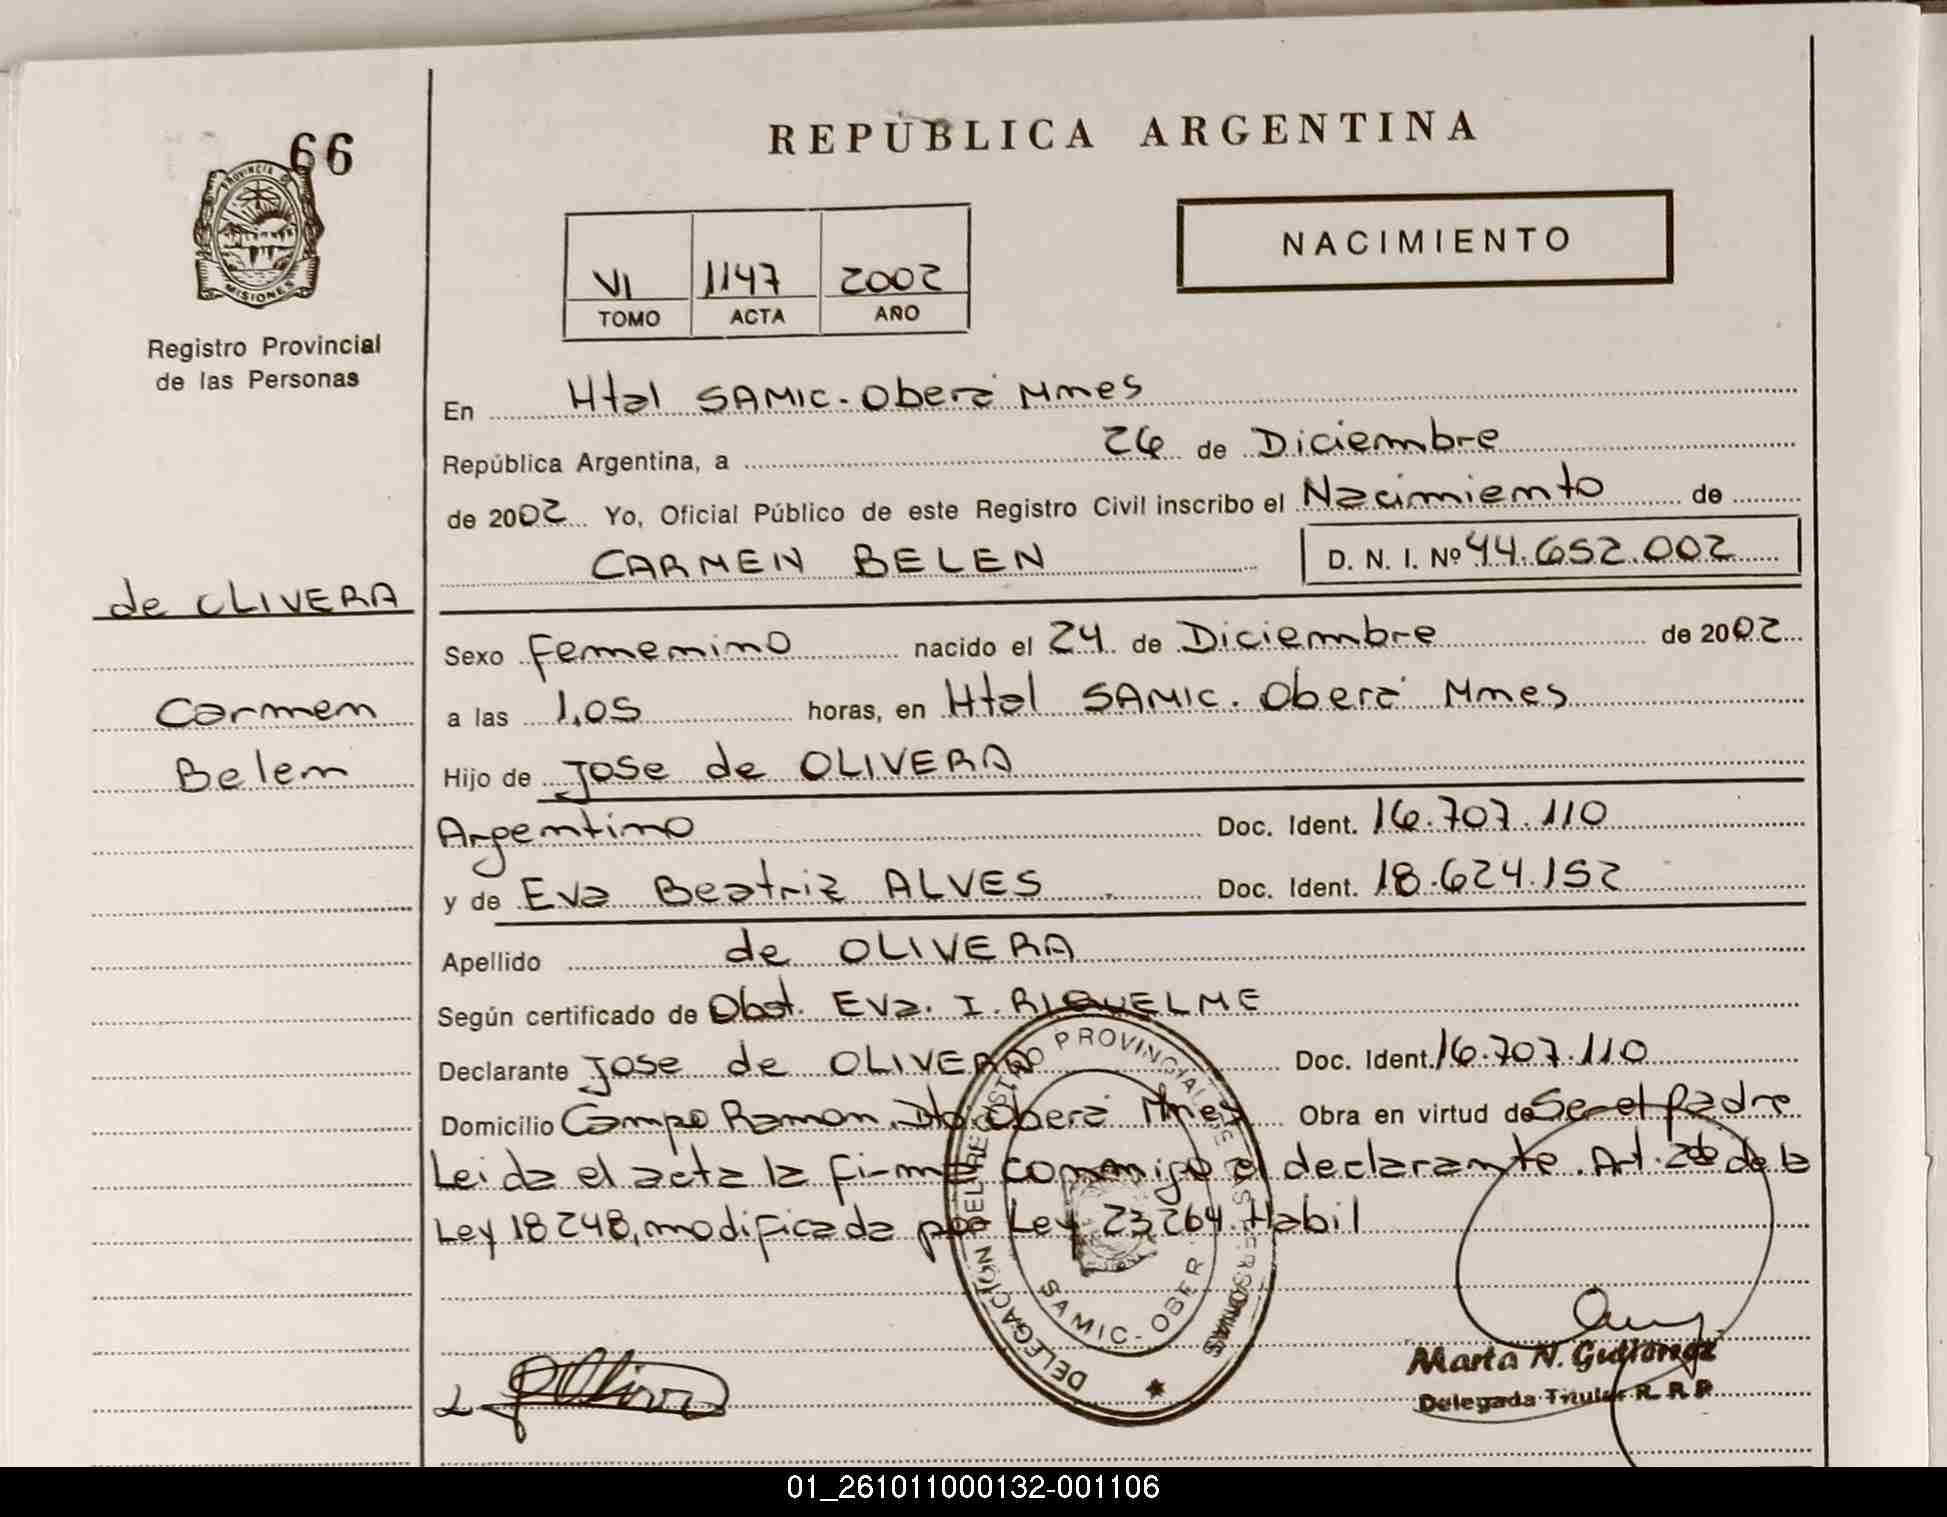 66
PROVINCIA DE
MISIONES
Registro Provincial
de las Personas
de OLIVERA
Carmen
Belen
REPUBLICA ARGENTINA
NACIMIENTO
VI 1147 2002
TOMO ACTA AÑO
En Htal SAMIC. Oberá Mnes
República Argentina, a 26 de Diciembre
de 2002 Yo, Oficial Público de este Registro Civil inscribo el Nacimiento de
CARMEN BELEN D. N. I. Nº 44.652.002
Sexo Femenino nacido el 24 de Diciembre de 2002
a las 1,05 horas, en Htal SAMIC. Oberá Mnes
Hijo de Jose de OLIVERA
Argentino Doc. Ident. 16.707.110
y de Eva Beatriz ALVES Doc. Ident. 18.624.152
Apellido de OLIVERA
Según certificado de Obst. Eva. I. RIQUELME
Declarante Jose de OLIVERA Doc. Ident. 16.707.110
Domicilio Campo Ramon. Dto Oberá Mnes Obra en virtud de Ser el Padre
Leida el acta la firma conmigo el declarante. Art. 26 de la
Ley 18248, modificada por Ley 23264. Habil
DELEGACION DEL REGISTRO PROVINCIAL DE LAS PERSONAS
SAMIC - OBERA
Marta N. Gutierrez
Delegada Titular R. R. P.
01_261011000132-001106